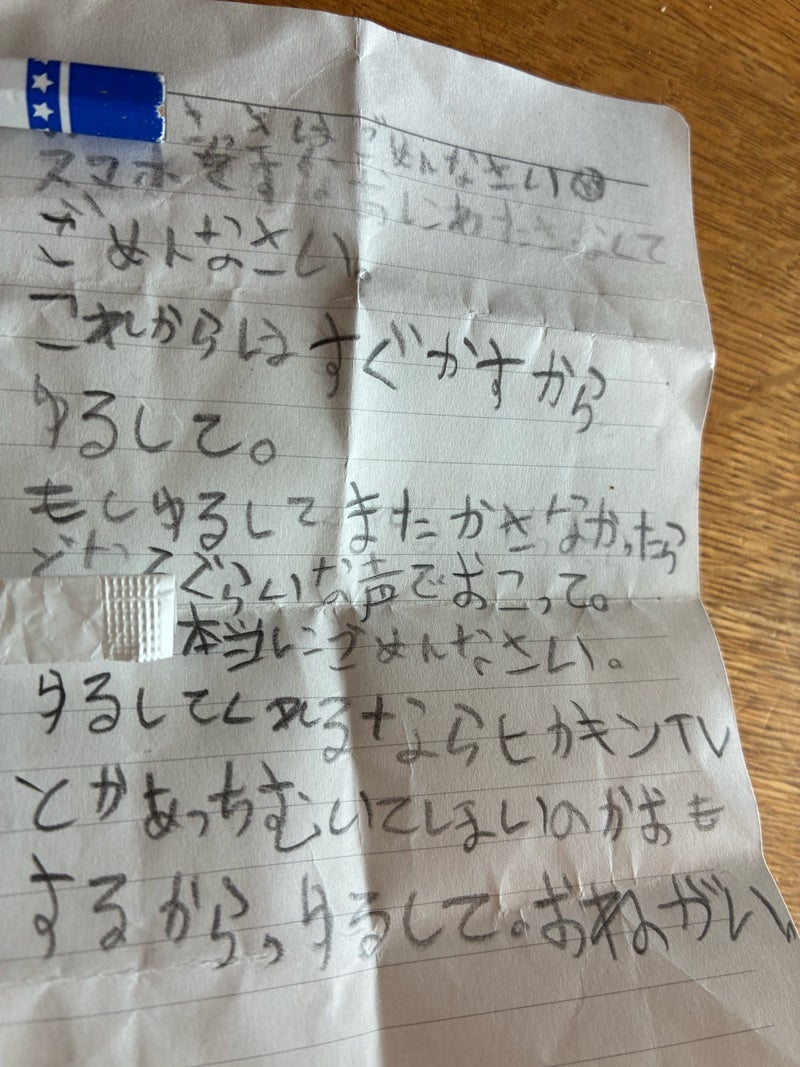 さっきはごめんなさい
スマホをすなおにわたさなくて
ごめんなさい。
これからはすぐかすから
ゆるして。
もしゆるしてまたかさなかったら
ぐらいな声でおこって。
本当にごめんなさい。
ゆるしてくれるならヒカキンTV
とかあっちむいてしほいのかおも
するから、ゆるして。おねがい。